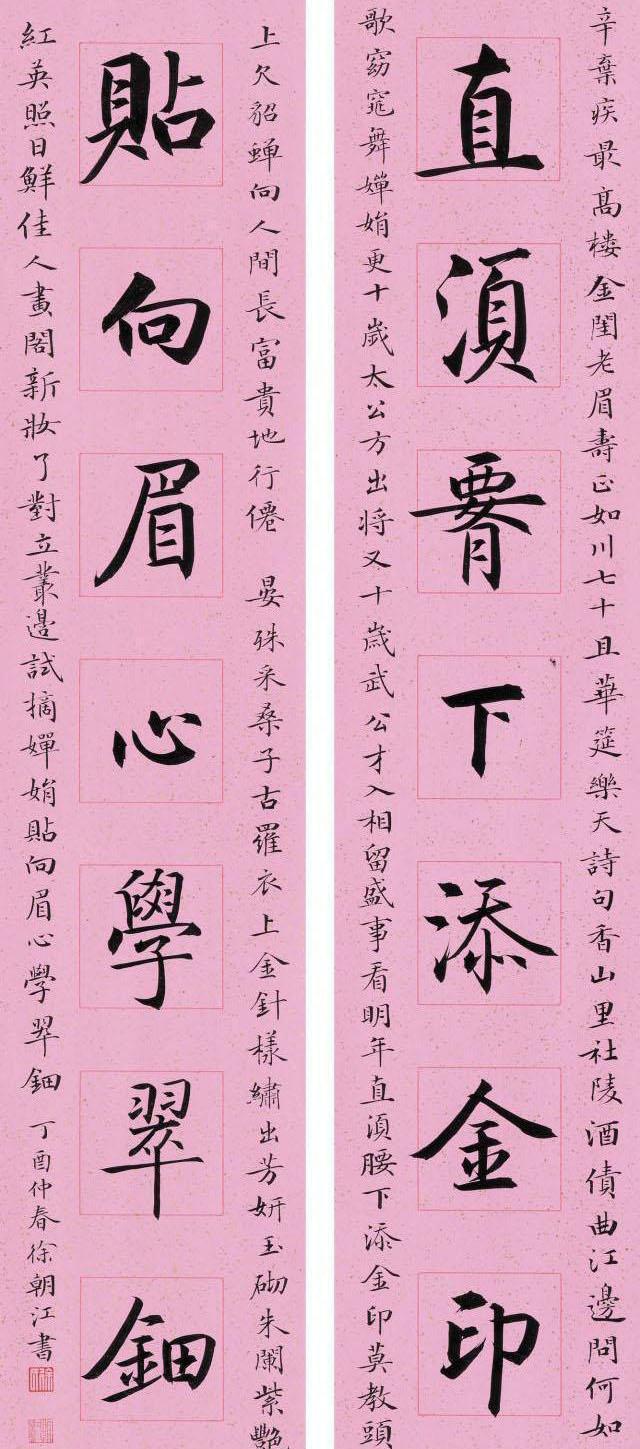 辛棄疾最髙楼金閨老眉壽正如川七十且華筵樂天詩句香山里社陵酒債曲江邊問何如
直須𦝫下添金印
歌窈窕舞嬋娟更十歲太公方出将又十歲武公才入相留盛事看明年直須腰下添金印莫教頭
上欠貂蟬向人間長富貴地行僊 晏殊采桑子古羅衣上金針樣繡出芳妍玉砌朱闌紫艷
貼向眉心學翠鈿
紅英照日鮮佳人畫閣新妝了對立叢邊試摘嬋娟貼向眉心學翠鈿 丁酉仲春徐朝江書